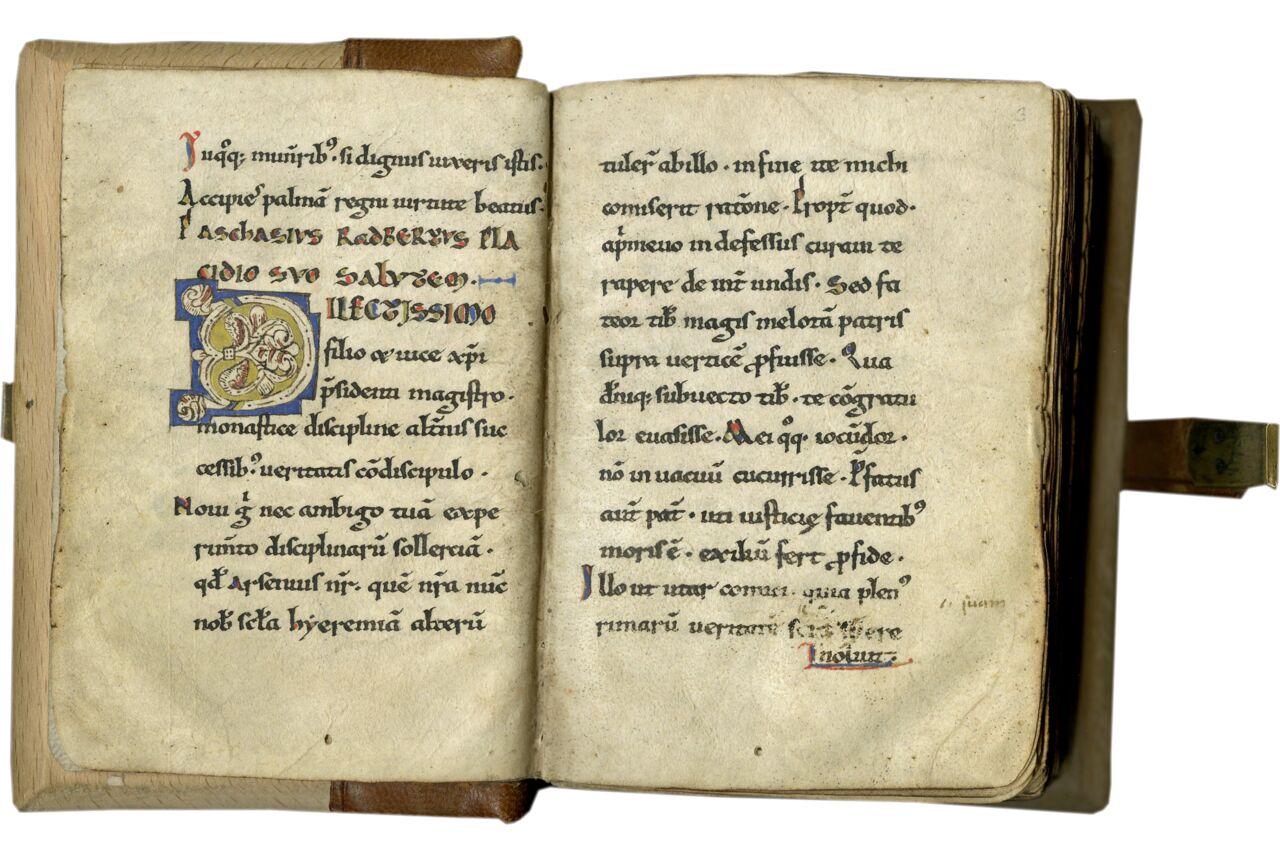 Juqoq; munerib9. si dignus uixeris istis.
Accipies palmā regni uirtute beatus.
PASCHASIUS RADBERTUS PLA
CIDIO SUO SALUTEM.
DILECTISSIMO
filio & uice xp̄i
p̄sidenti magistro.
monastice discipline alt̄nis suc
cessib9. ueritatis cōdiscipulo.
Noui g̊ nec ambigo tuā expe
rim̄to disciplinarū sollerciā.
qđ Arsenius nr̄. quē nr̄a nūc
nob̄ scl̄a hyeremiā alterū
3
tuler̄ ab illo. in fine ut michi
comiserit ratōne. Propt̄ quod.
ap̄meuo indefessus curaui te
rapere de mūdi undis. Sed fa
teor tib̄ magis melotā patris
supra uerticē ꝓfuisse. Qua
deniq; subuecto tib̄. te cōgratu
lor euasisse. Mei qoq. iocūdor.
nō in uacuū cucurrisse. P̄fatus
aut̄ pat̄. uti iusticię fauentib9
moris ē. exiliū fert ꝓ fide.
Illo ut utar comici. quia plen9
rimarū ueritatē
inoluit.